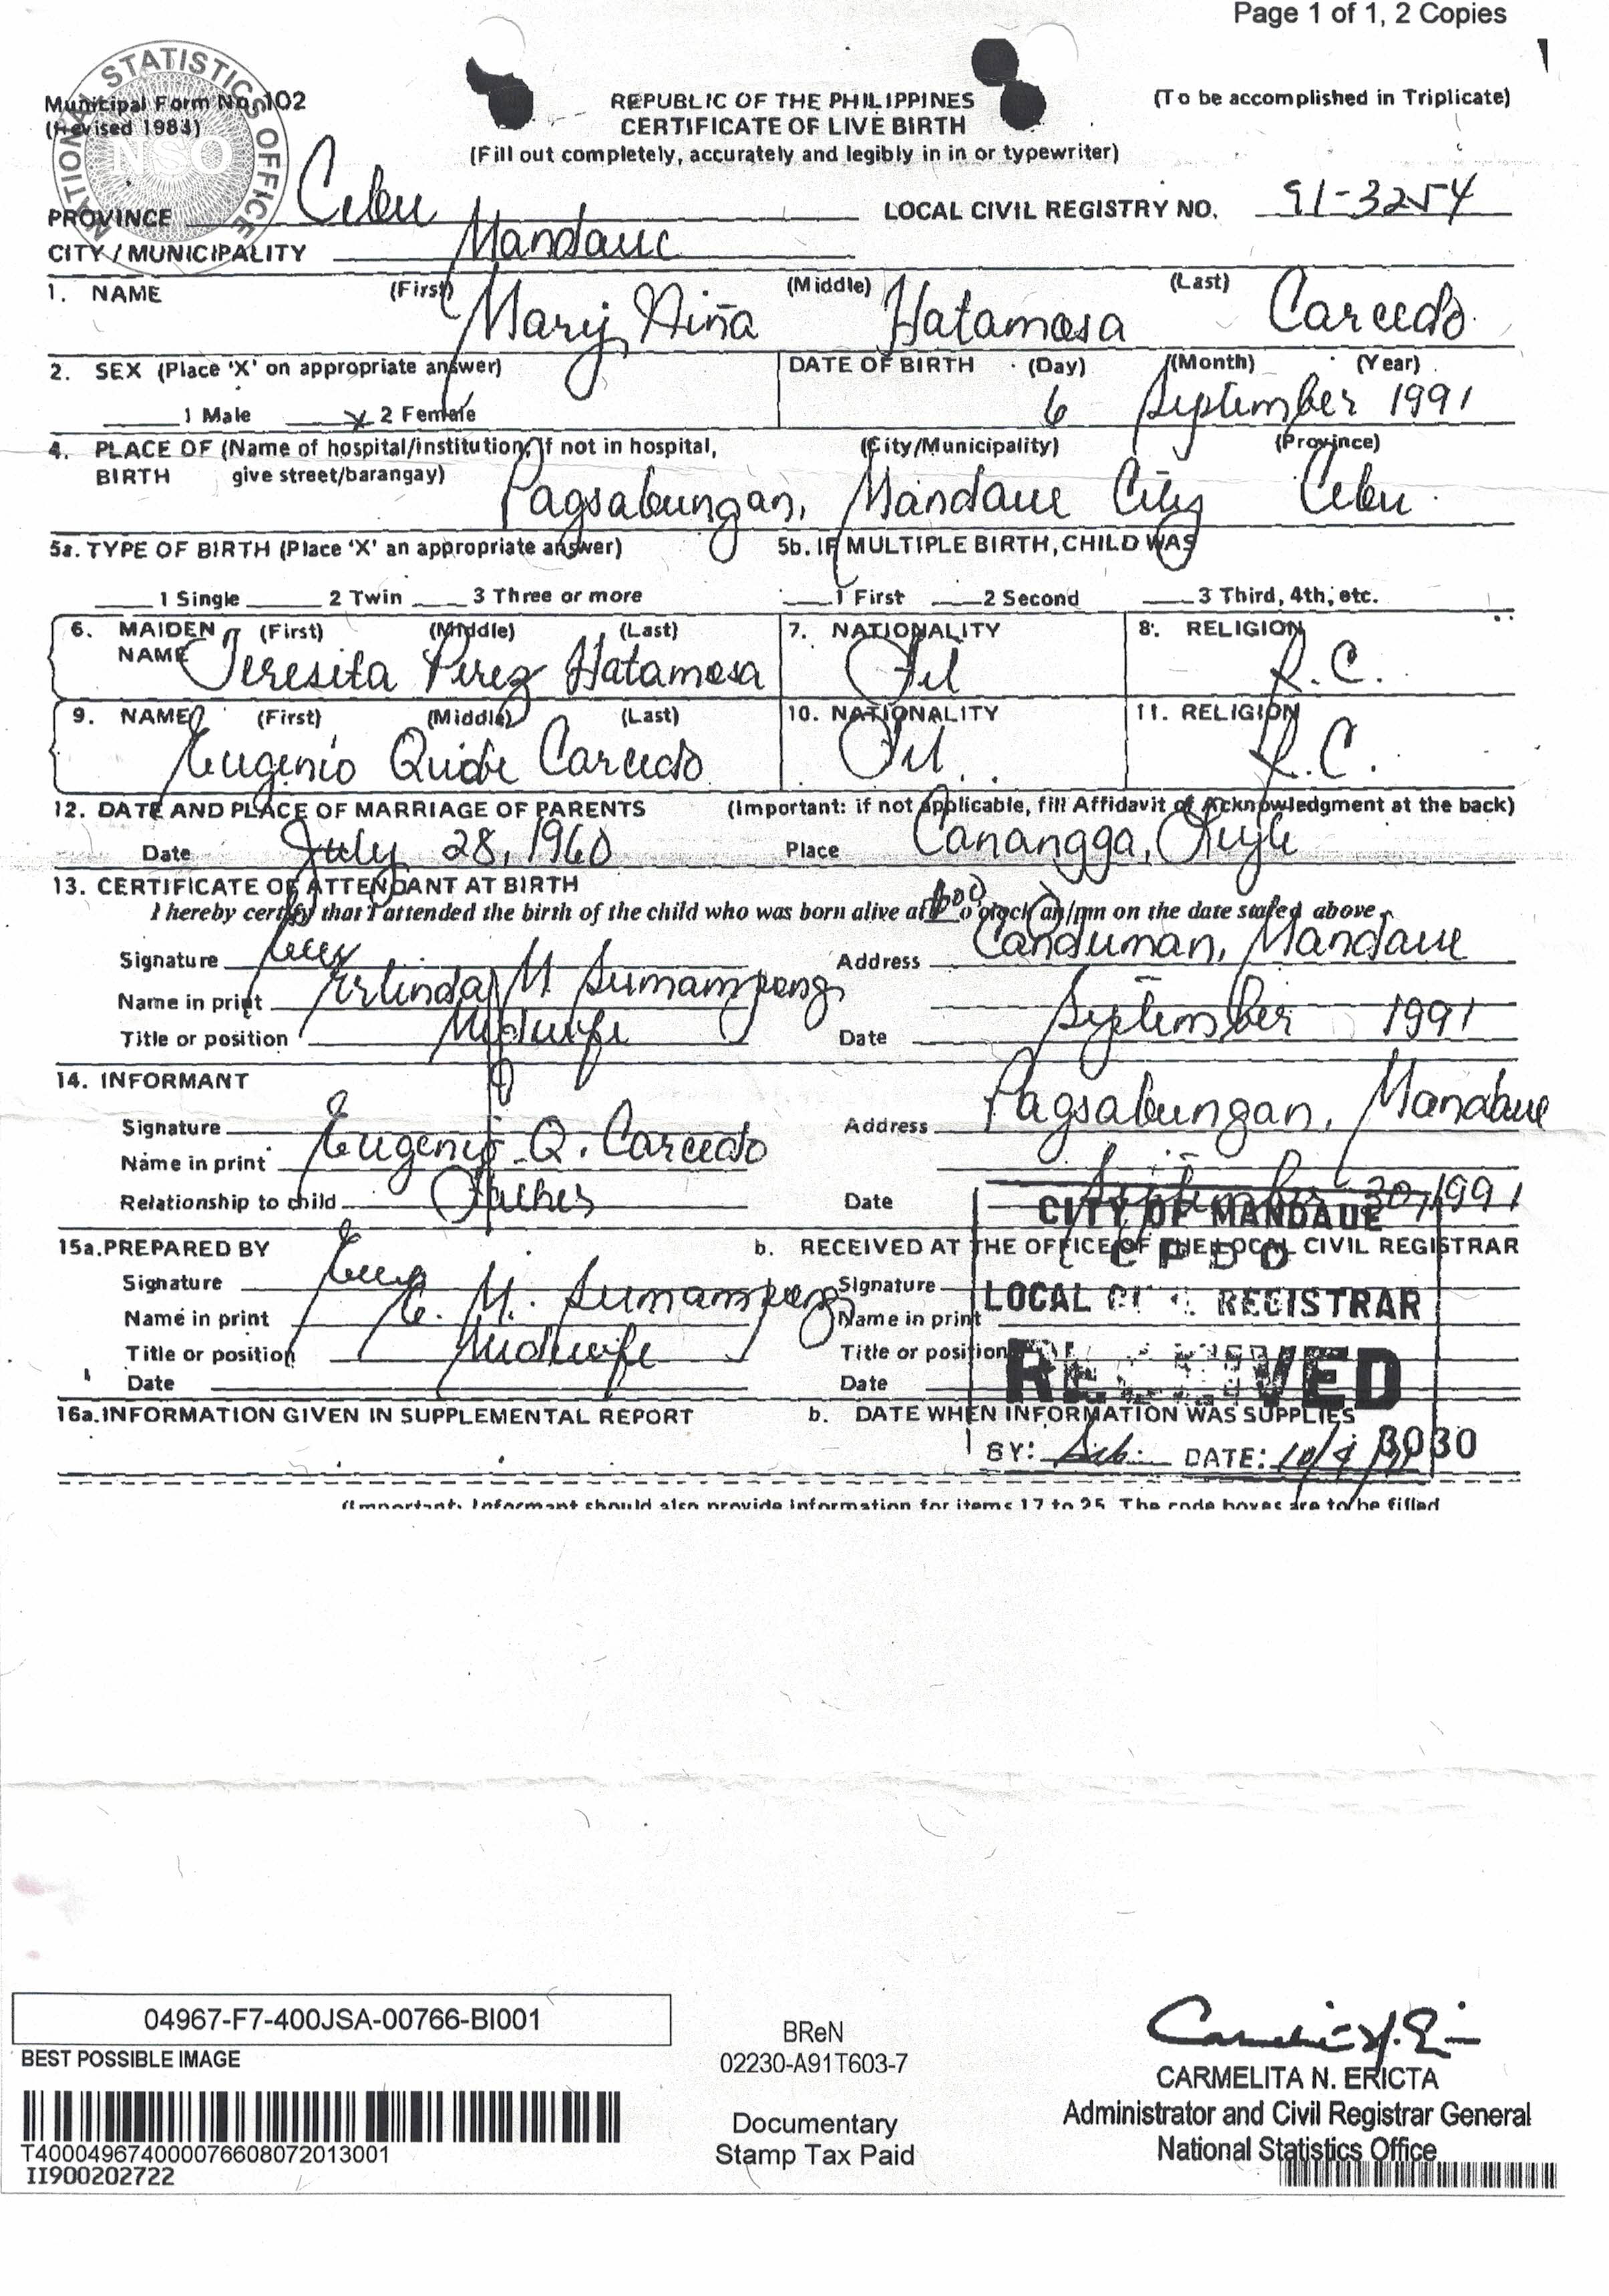 Page 1 of 1, 2 Copies
NATIONAL STATISTICS OFFICE
NSO
Municipal Form No. 102
(Revised 1983)
REPUBLIC OF THE PHILIPPINES
CERTIFICATE OF LIVE BIRTH
(Fill out completely, accurately and legibly in in or typewriter)
(To be accomplished in Triplicate)
PROVINCE Cebu LOCAL CIVIL REGISTRY NO. 91-3254
CITY / MUNICIPALITY Mandaue
1. NAME (First) Mary Niña (Middle) Hatamosa (Last) Carcedo
2. SEX (Place 'X' on appropriate answer) DATE OF BIRTH (Day) (Month) (Year)
1 Male x 2 Female 6 September 1991
4. PLACE OF (Name of hospital/institution, If not in hospital, (City/Municipality) (Province)
BIRTH give street/barangay) Pagsabungan, Mandaue City Cebu
5a. TYPE OF BIRTH (Place 'X' an appropriate answer) 5b. IF MULTIPLE BIRTH, CHILD WAS
1 Single 2 Twin 3 Three or more 1 First 2 Second 3 Third, 4th, etc.
6. MAIDEN (First) (Middle) (Last) 7. NATIONALITY 8. RELIGION
NAME Teresita Perez Hatamosa Fil R.C.
9. NAME (First) (Middle) (Last) 10. NATIONALITY 11. RELIGION
Eugenio Carcedo Fil R.C.
12. DATE AND PLACE OF MARRIAGE OF PARENTS (Important: if not applicable, fill Affidavit of Acknowledgment at the back)
Date July 28, 1960 Place Canangga,
13. CERTIFICATE OF ATTENDANT AT BIRTH
I hereby certify that I attended the birth of the child who was born alive at o'clock am/pm on the date stated above.
Signature Address Canduman, Mandaue
Name in print Erlinda M. Sumampong
Title or position Midwife Date September 1991
14. INFORMANT
Signature Address Pagsabungan, Mandaue
Name in print Eugenio Q. Carcedo
Relationship to child Father Date September 30, 1991
15a. PREPARED BY b. RECEIVED AT THE OFFICE OF THE LOCAL CIVIL REGISTRAR
Signature Signature
Name in print E. M. Sumampong Name in print
Title or position Midwife Title or position
Date Date
CITY OF MANDAUE
C P D O
LOCAL CIVIL REGISTRAR
RECEIVED
16a. INFORMATION GIVEN IN SUPPLEMENTAL REPORT b. DATE WHEN INFORMATION WAS SUPPLIES
BY: DATE: 3030
(Important: Informant should also provide information for items 17 to 25. The code boxes are to be filled
04967-F7-400JSA-00766-BI001
BEST POSSIBLE IMAGE
T400049674000076608072013001
II900202722
BReN
02230-A91T603-7
Documentary
Stamp Tax Paid
CARMELITA N. ERICTA
Administrator and Civil Registrar General
National Statistics Office